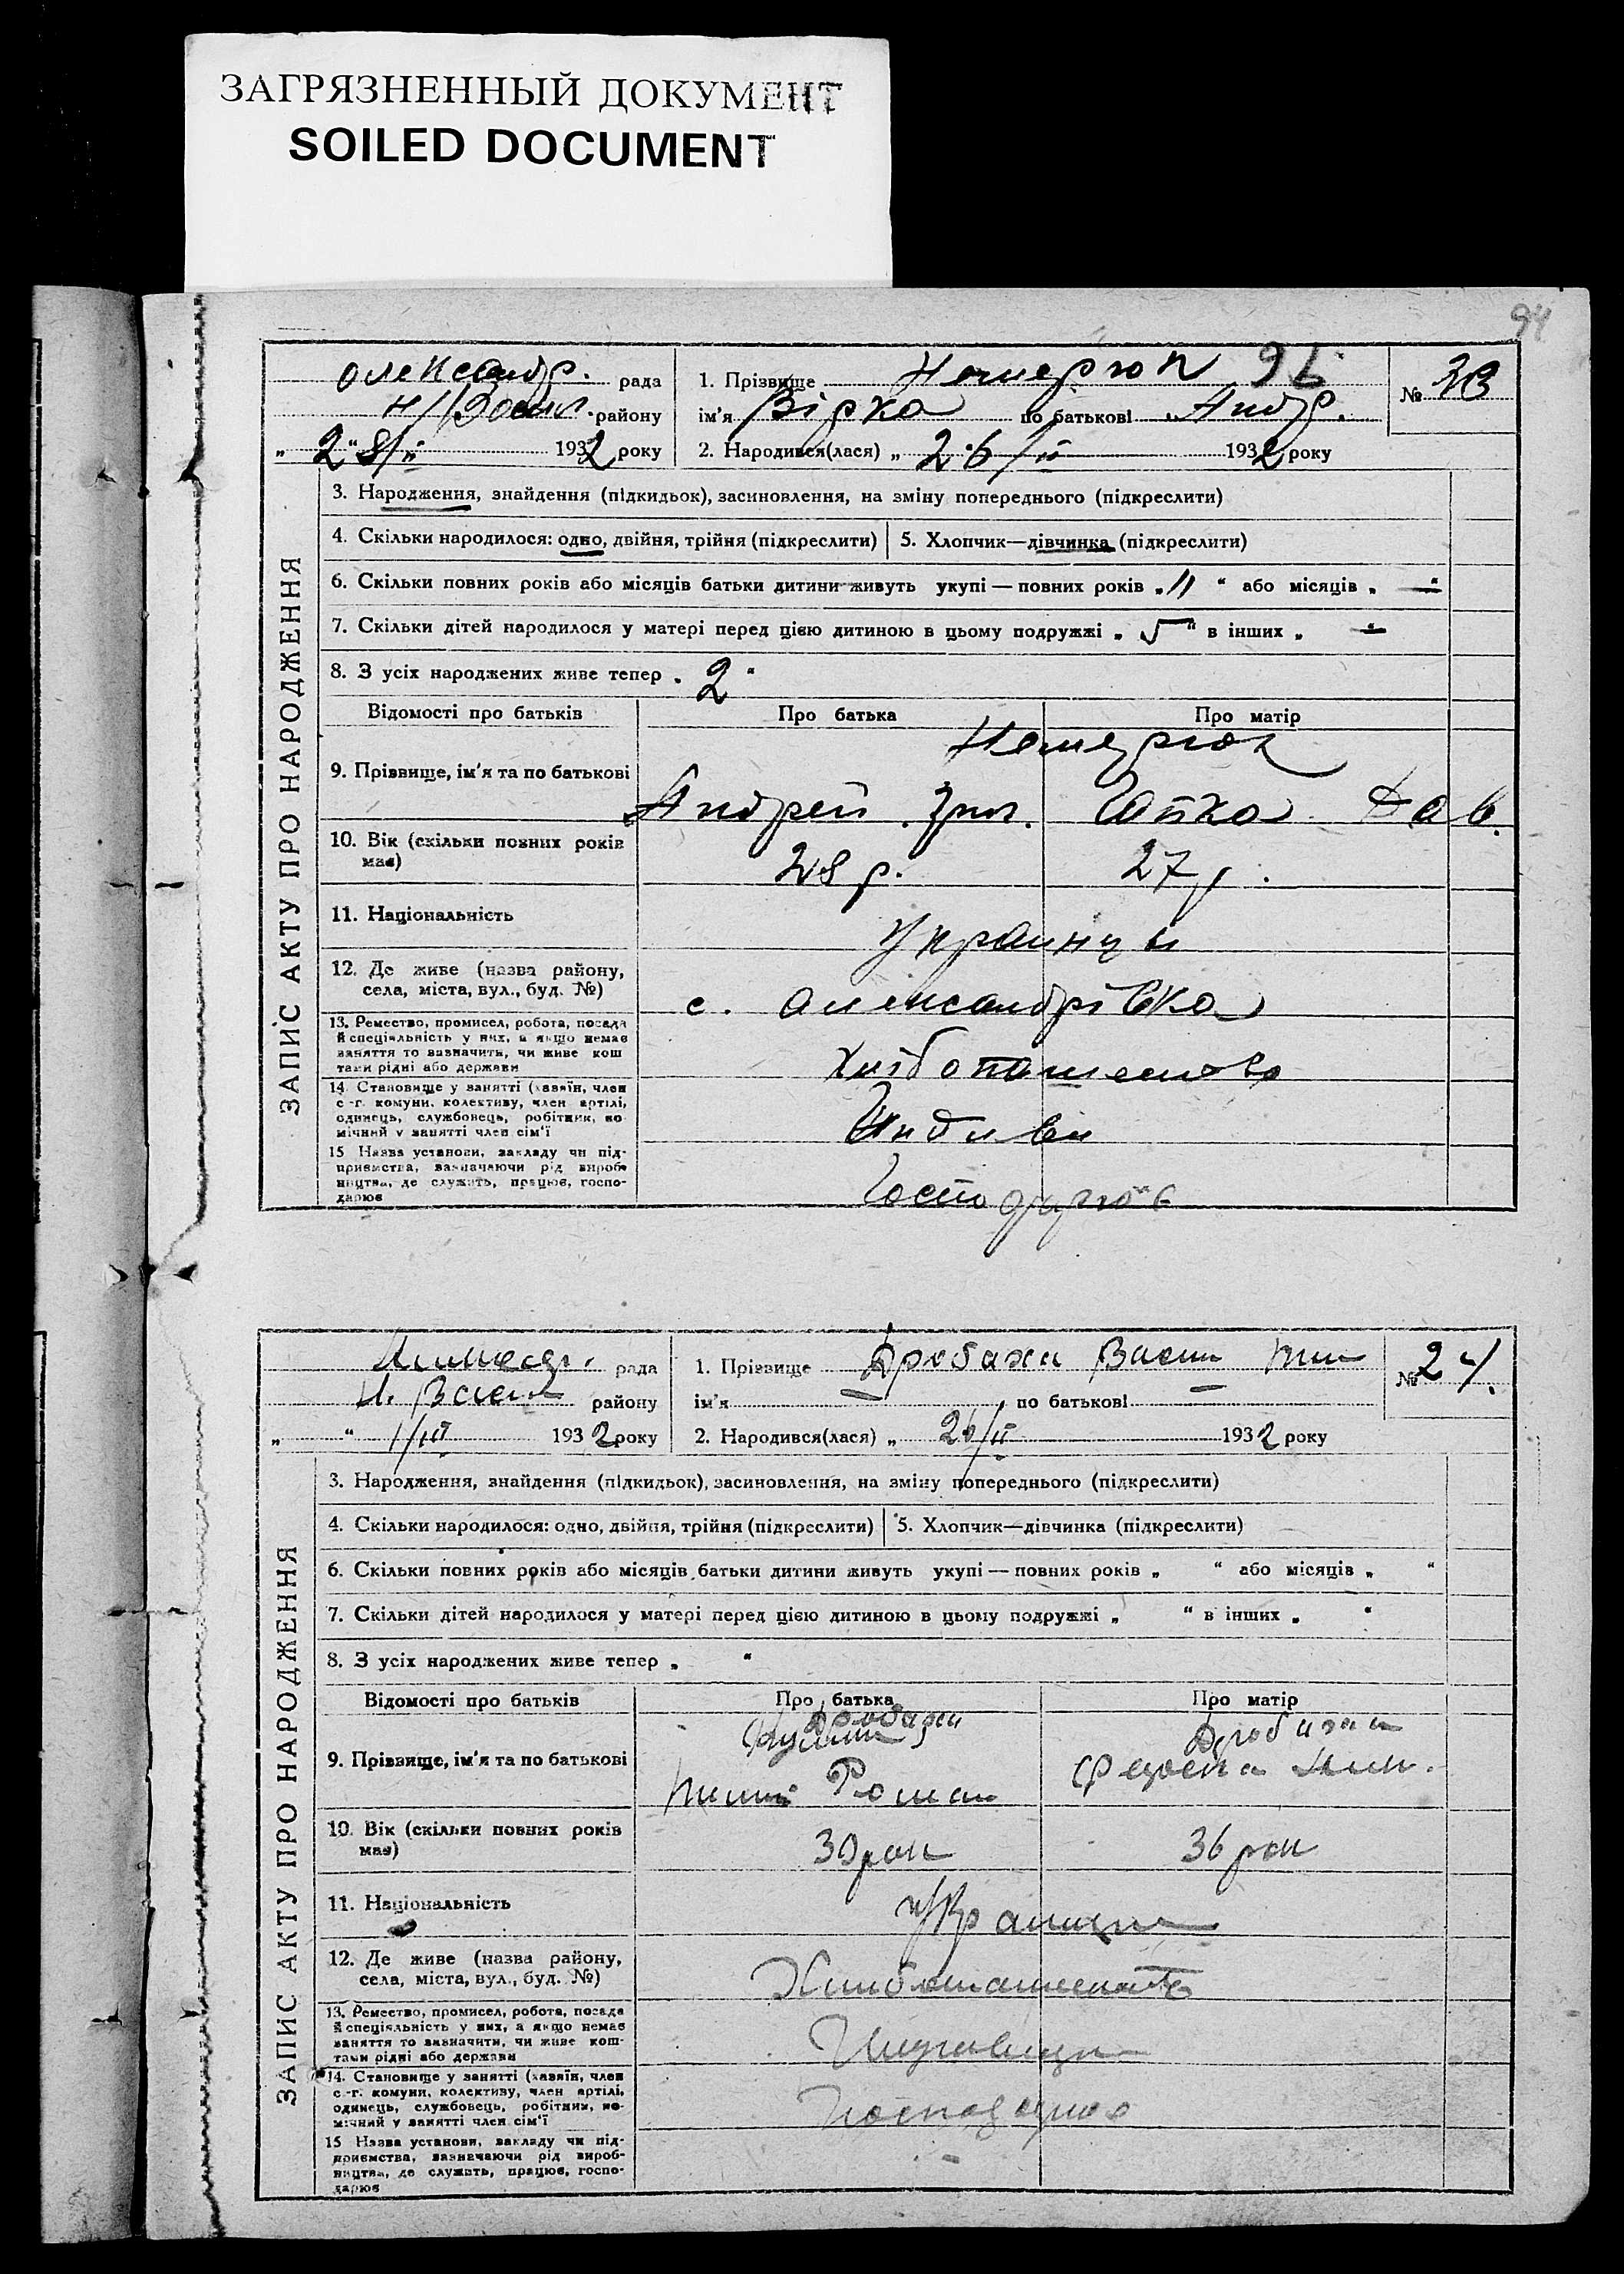 ЗАГРЯЗНЕННЫЙ ДОКУМЕНТ
SOILED DOCUMENT
94
Олександр. рада
Н/Васил. району
„ 2"8/ІІ 1932 року
1. Прізвище 92
ім'я Вірка по батькові Андр.
№
2. Народився(лася) „ 26/ІІ 1932 року
ЗАПИС АКТУ ПРО НАРОДЖЕННЯ
3. Народження, знайдення (підкидьок), засиновлення, на зміну попереднього (підкреслити)
4. Скільки народилося: одно, двійня, трійня (підкреслити) 5. Хлопчик—дівчинка (підкреслити)
6. Скільки повних років або місяців батьки дитини живуть укупі — повних років „ 11 “ або місяців „ — “
7. Скільки дітей народилося у матері перед цією дитиною в цьому подружжі „ 5 “ в інших „ — “
8. З усіх народжених живе тепер „ 2 “
Відомості про батьків Про батька Про матір
9. Прізвище, ім'я та по батькові
Андрей Дав.
10. Вік (скільки повних років
має)
28 р. 27 р.
11. Національність
Украинци
12. Де живе (назва району,
села, міста, вул., буд. №)
с. Александрівка
13. Ремество, промисел, робота, посада
й спеціяльність у них, а якщо немає
заняття то зазначити, чи живе кош
тами рідні або держави
Хлібопашество
14. Становище у занятті (хазяїн, член
с.-г. комуни, колективу, член артілі,
одинець, службовець, робітник, по-
мічний у занятті член сім'ї
Индиви
15 Назва установи, закладу чи під-
приємства, зазначаючи рід вироб-
ництва, де служить, працює, госпо-
дарює
Господарює
рада
Н. Васил району
„ “ 1/ІІІ 1932 року
1. Прізвище Дробаха Васил
ім'я — по батькові —
№ 24.
2. Народився(лася) „ 26/ІІ 1932 року
ЗАПИС АКТУ ПРО НАРОДЖЕННЯ
3. Народження, знайдення (підкидьок), засиновлення, на зміну попереднього (підкреслити)
4. Скільки народилося: одно, двійня, трійня (підкреслити) 5. Хлопчик—дівчинка (підкреслити)
6. Скільки повних років або місяців батьки дитини живуть укупі — повних років „ “ або місяців „ “
7. Скільки дітей народилося у матері перед цією дитиною в цьому подружжі „ “ в інших „ “
8. З усіх народжених живе тепер „ “
Відомості про батьків Про батька Про матір
9. Прізвище, ім'я та по батькові
Дробаха Дробаха
Роман
10. Вік (скільки повних років
має)
36 рок
11. Національність
Украинци
12. Де живе (назва району,
села, міста, вул., буд. №)
Хлибопашество
13. Ремество, промисел, робота, посада
й спеціяльність у них, а якщо немає
заняття то зазначити, чи живе кош-
тами рідні або держави
14. Становище у занятті (хазяїн, член
с.-г. комуни, колективу, член артілі,
одинець, службовець, робітник, по-
мічний у занятті член сім'ї
15 Назва установи, закладу чи під-
приємства, зазначаючи рід вироб-
ництва, де служить, працює, госпо-
дарює